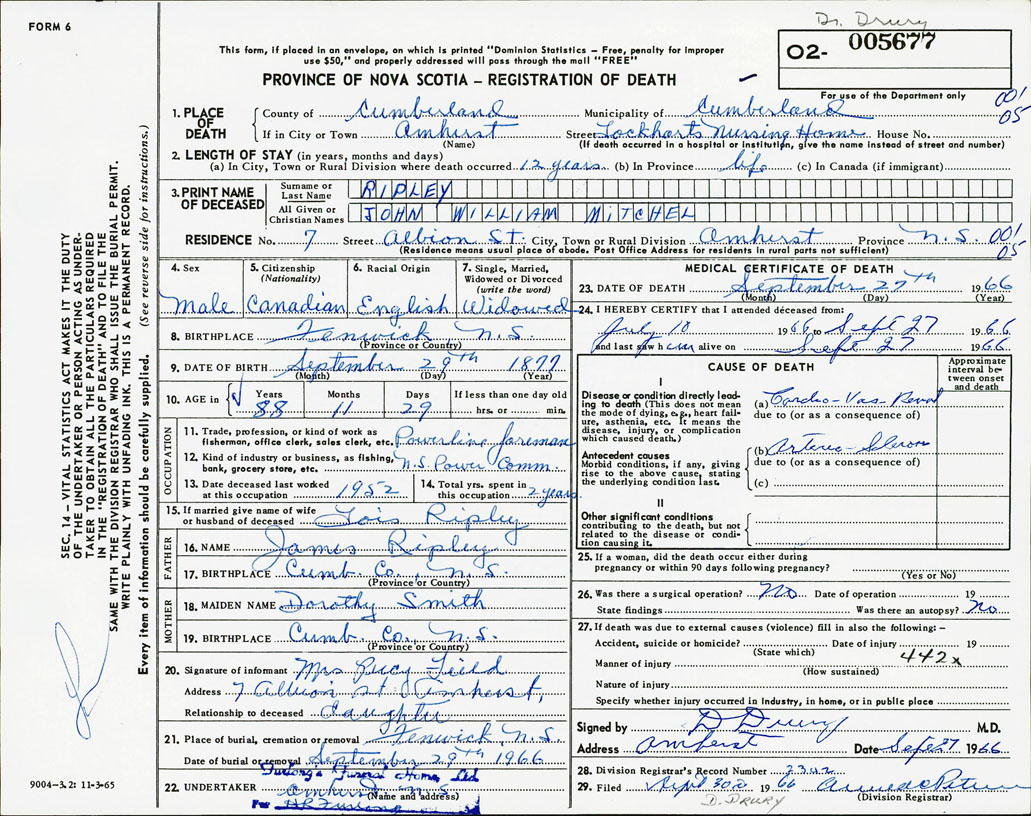 Dr. Drury
FORM 6
02- 005677
This form, if placed in an envelope, on which is printed "Dominion Statistics – Free, penalty for improper
use $50," and properly addressed will pass through the mail "FREE"
PROVINCE OF NOVA SCOTIA – REGISTRATION OF DEATH
For use of the Department only
001
05
1. PLACE OF DEATH
County of Cumberland Municipality of Cumberland
If in City or Town Amherst Street Lockharts Nursing Home House No.
(Name) (If death occurred in a hospital or institution, give the name instead of street and number)
2. LENGTH OF STAY (in years, months and days)
(a) In City, Town or Rural Division where death occurred 12 years (b) In Province life (c) In Canada (if immigrant)
3. PRINT NAME OF DECEASED
Surname or Last Name RIPLEY
All Given or Christian Names JOHN WILLIAM MITCHEL
RESIDENCE No. 7 Street Albion St. City, Town or Rural Division Amherst Province N.S. 001
05
(Residence means usual place of abode. Post Office Address for residents in rural parts not sufficient)
4. Sex
Male
5. Citizenship
(Nationality)
Canadian
6. Racial Origin
English
7. Single, Married,
Widowed or Divorced
(write the word)
Widowed
8. BIRTHPLACE Fenwick N.S.
(Province or Country)
9. DATE OF BIRTH September 29th 1877
(Month) (Day) (Year)
10. AGE in Years Months Days If less than one day old
88 11 29 hrs. or min.
OCCUPATION
11. Trade, profession, or kind of work as
fisherman, office clerk, sales clerk, etc. Powerline foreman
12. Kind of industry or business, as fishing,
bank, grocery store, etc. N.S. Power Comm.
13. Date deceased last worked
at this occupation 1952
14. Total yrs. spent in
this occupation 2 years
15. If married give name of wife
or husband of deceased Lois Ripley
FATHER
16. NAME James Ripley
17. BIRTHPLACE Cumb. Co., N.S.
(Province or Country)
MOTHER
18. MAIDEN NAME Dorothy Smith
19. BIRTHPLACE Cumb. Co., N.S.
(Province or Country)
20. Signature of informant Mrs Field
Address 7 Albion St. Amherst,
Relationship to deceased daughter
21. Place of burial, cremation or removal Fenwick, N.S.
Date of burial or removal September 29th 1966
Furlong's Funeral Home, Ltd
22. UNDERTAKER Amherst N.S.
(Name and address)
Per
MEDICAL CERTIFICATE OF DEATH
23. DATE OF DEATH September 27th 1966
(Month) (Day) (Year)
24. I HEREBY CERTIFY that I attended deceased from:
July 10 1966 to Sept 27 1966
and last saw him alive on Sept 27 1966
CAUSE OF DEATH
Approximate
interval be-
tween onset
and death
I
Disease or condition directly lead-
ing to death (This does not mean
the mode of dying, e.g., heart fail-
ure, asthenia, etc. It means the
disease, injury, or complication
which caused death.)
(a) Cardio-Vas-Renal
due to (or as a consequence of)
Antecedent causes
Morbid conditions, if any, giving
rise to the above cause, stating
the underlying condition last.
(b) Arterio-Scleros
due to (or as a consequence of)
(c)
II
Other significant conditions
contributing to the death, but not
related to the disease or condi-
tion causing it.
25. If a woman, did the death occur either during
pregnancy or within 90 days following pregnancy?
(Yes or No)
26. Was there a surgical operation? No Date of operation 19
State findings Was there an autopsy? No
27. If death was due to external causes (violence) fill in also the following: –
Accident, suicide or homicide? Date of injury 19
(State which)
442x
Manner of injury
(How sustained)
Nature of injury
Specify whether injury occurred in industry, in home, or in public place
Signed by D Drury M.D.
Address Amherst Date Sept 27 1966
28. Division Registrar's Record Number
29. Filed Sept 30 1966
D. DRURY
(Division Registrar)
SEC. 14 – VITAL STATISTICS ACT MAKES IT THE DUTY
OF THE UNDERTAKER OR PERSON ACTING AS UNDER-
TAKER TO OBTAIN ALL THE PARTICULARS REQUIRED
IN THE "REGISTRATION OF DEATH" AND TO FILE THE
SAME WITH THE DIVISION REGISTRAR WHO SHALL ISSUE THE BURIAL PERMIT.
WRITE PLAINLY WITH UNFADING INK. THIS IS A PERMANENT RECORD.
Every item of information should be carefully supplied. (See reverse side for instructions.)
9004-3.2: 11-3-65